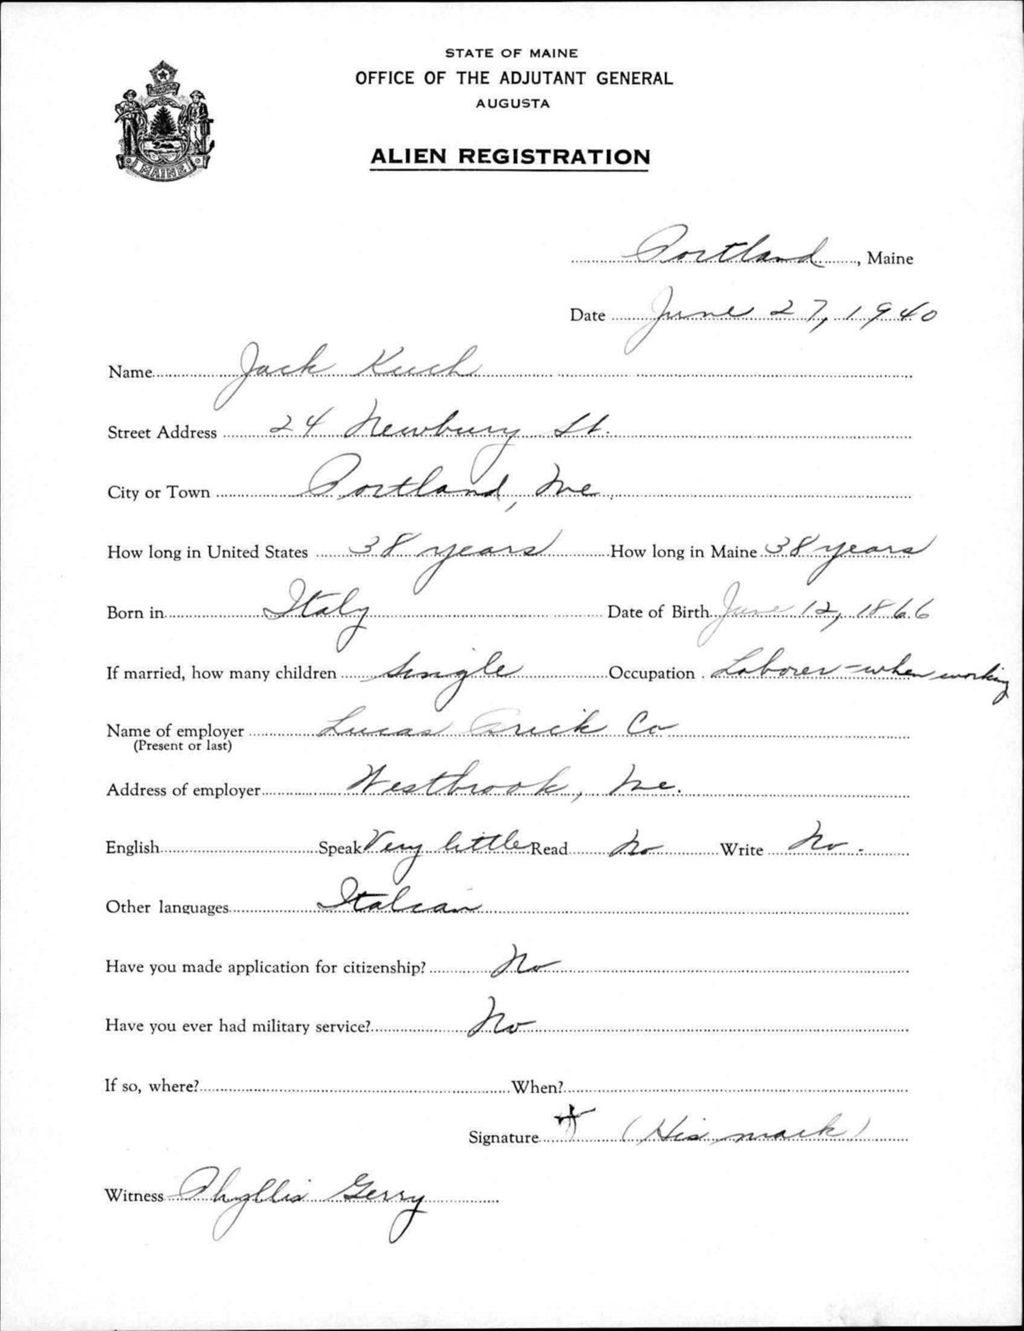 STATE OF MAINE
OFFICE OF THE ADJUTANT GENERAL
AUGUSTA
MAINE
ALIEN REGISTRATION
Portland, Maine
Date June 27, 1940
Name Jack
Street Address 24 Newbury St.
City or Town Portland, Me.
How long in United States 38 years How long in Maine 38 years
Born in Italy Date of Birth June 12, 1866
If married, how many children Single Occupation Laborer - when working
Name of employer Lucas Brick Co
(Present or last)
Address of employer Westbrook, Me.
English Speak Very little Read No Write No.
Other languages Italian
Have you made application for citizenship? No
Have you ever had military service? No
If so, where? When?
Signature + (His mark)
Witness Phyllis Gerry